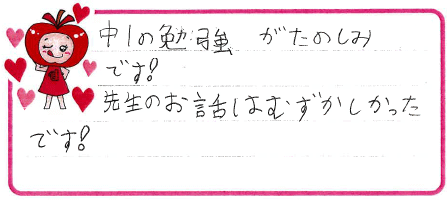 中1の勉強 がたのしみ
です!
先生のお話はむずかしかった
です!